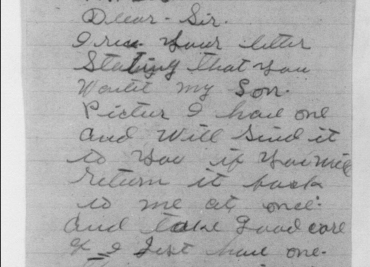 Dear Sir.
I rec your letter
Stating that you
Wantit my Son.
Pictur I have one
and Will Send it
to you if you will
return it back
to me at once.
and take good care
of I Just have one.